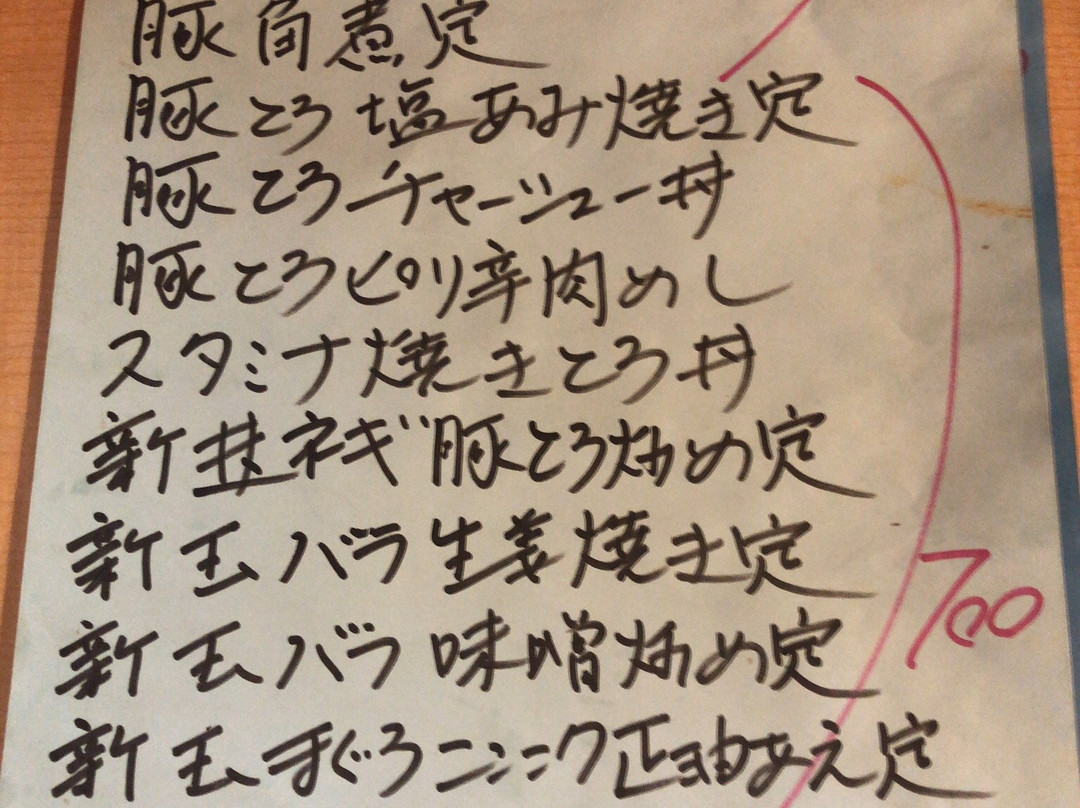 豚角煮定
豚とろ塩あみ焼き定
豚とろチャーシュー丼
豚とろピリ辛肉めし
スタミナ焼きとろ丼
新ネギ豚とろ炒め定
新玉バラ生姜焼き定
新玉バラ味噌炒め定
700
新玉まぐろニンニク正油あえ定